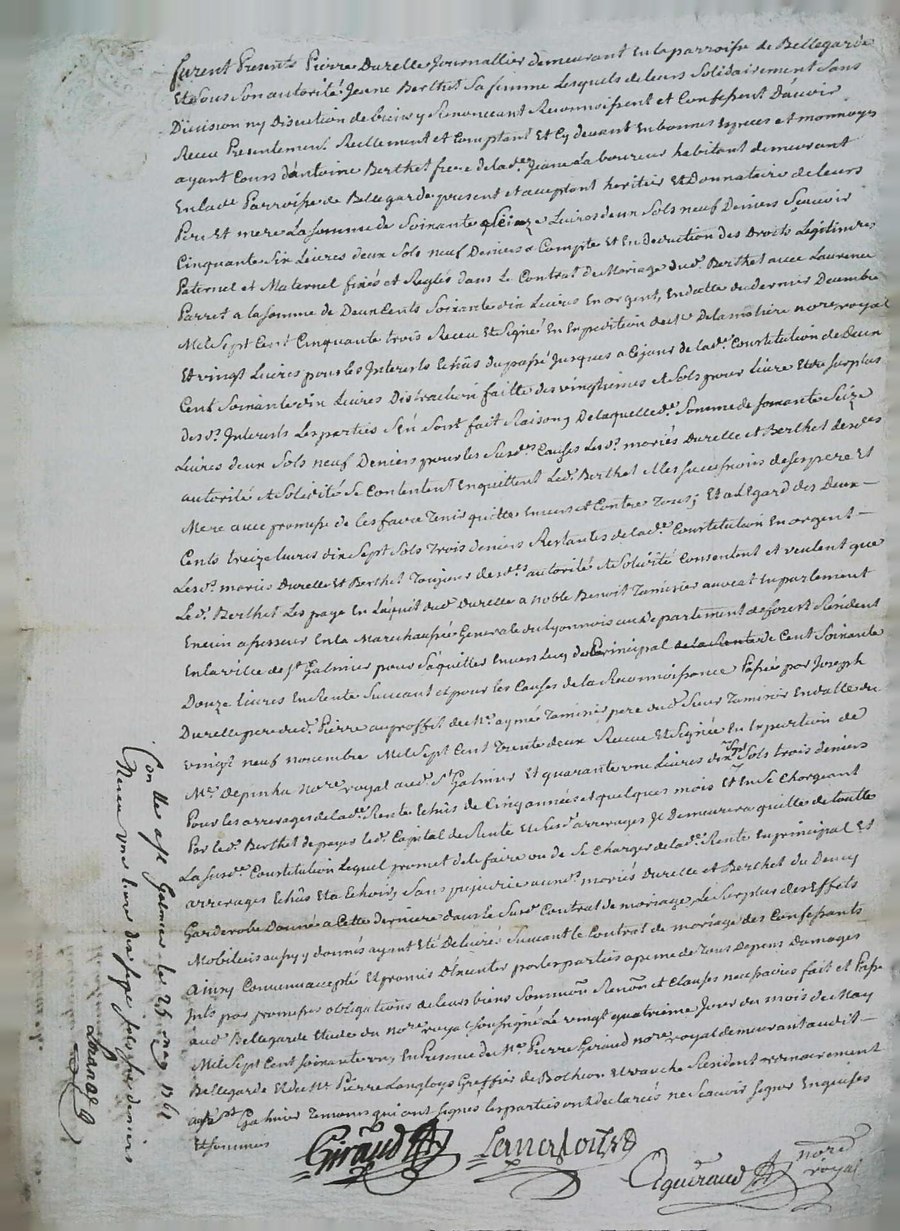 furent Presents Pierre Durelle Journallier demeurant En la parroisse de Bellegarde
Et sous son autorité Jeane Berthet sa femme Lesquels de leurs Solidairement Sans
Division ny Discution de biens y Renonceant Reconnoissent et Confessent D'avoir
Receu Presentement Reellement et Comptant Et Cy devant En bonnes Especes et monnoyes
ayant Cours d'antoine Berthet frere de lade. Jeane La boureur habitant demeurant
En lade. Parroisse de Bellegarde present et acceptant heritier Et Donnataire de leurs
Pere Et mere La somme de Soixante seize Livres deux Sols neuf Deniers Sçavoir
Cinquante Six Livres deux Sols neuf Deniers a Compte et En Deduction des Droits Légitimes
Paternel et Maternel fixés et Reglés dans Le Contrat de Mariage dud. Berthet avec Laurence
Parret a la Somme de Deux Cents Soixante dix Livres En argent, En datte du dernier Decembre
Mil Sept Cent Cinquante trois Receu Et Signé En Expedition De La matiere nore. royal
Et vingt Livres pour les Interests Echus du passé Jusques a Ce jour de lade. Constitution de Deux
Cent Soixante dix Livres Distraction faitte des vingtiemes et Sols pour Livre Et le surplus
des d. Interests Les parties S'en Sont fait Raison, De laquelle de. Somme de soixante Seize
Livres deux Sols neuf Deniers pour les Susdes. Causes Lesd. mariés Durelle et Berthet desdes
autorité et Solidité Se Contentent En quittent Led. Berthet et les successions de ses pere Et
Mere avec promesse de les faire Tenir quitte Envers et Contre Tous; Et a L'Egard des Deux
Cents treize livres dix Sept Sols Trois deniers Restantes de lade. Constitution En argent
Lesd. mariés Durelle Et Berthet Toujours desds. autorité et Solidité Consentent et veulent que
Led. Berthet Les paye En L'aquit dud. Durelle a noble Benoit Taminier avocat En parlement
Ancien assesseur En la Marechaussée Generale du Lyonnois au departement de forest Resident
En la ville de St. Galmier pour S'aquitter Envers Luy du Principal de la Rente de Cent Soixante
Douze livres En Rente Suivant et pour les Causes de la Reconnoissance Passée par Joseph
Durelle pere dud. Pierre au proffit de Mr. aymée Taminier pere dud. Sieur Taminier En datte du
vingt neuf novembre Mil Sept Cent Trente deux Receue Et Signée En Expedition de
Me. Depinha nore. royal aud. St. Galmier Et quarante une Livres dix Sept Sols trois deniers
Pour les arrerages de lade. Rente Echus de Cinq années et quelques mois Et En Se Chargeant
Par led. Berthet de payer led. Capital de Rente Et Lesd. arrerages Il demeurera quitte de toutte
La Susde. Constitution Lequel promet de le faire ou de Se Charger de lade. Rente En principal Et
arrerages Echus Et a Echoir Sans prejudice auxd. mariés Durelle et Berthet du
Garderobe Donné a Cette derniere dans le Susd. Contrat de mariage, Le Surplus des Effets
Mobiliers aussy y donnés ayant Eté Delivrés Suivant le Contrat de mariage des Confessants
Ainsy Convenu accepté Et promis D'Executer par les parties a peine de Tous Depens Domages
Ints. par promesses obligations de leurs biens Soummon Renon et Clauses necessaires fait et Passé
aud. Bellegarde Etude du nore. royal soussigné Le vingt quatrieme Jour du mois de May
Mil Sept Cent Soixante un, En Presence de Me. Pierre Giraud nore. royal demeurant audit
Bellegarde Et de Me. Pierre Langloys Greffier de Bothéon Et Resident ordinairement
St. Galmier Temoins qui ont signés les parties ont declarés ne sçavoir signer Enquises
Et Sommés
Giraud Langlois
nore royal
Conllé a St. Galmier le 25 may 1761
Receu une livre dix sept sols six deniers